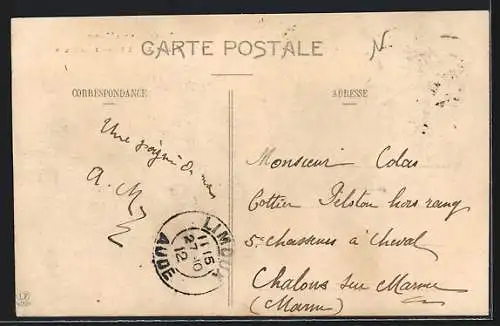 CARTE POSTALE
CORRESPONDANCE
ADRESSE
Une poignée de
A. M
Monsieur Colas
hors rang
5e chasseurs à cheval
Chalons sur Marne
(Marne)
LIMOUX
11 15
27 10
12
AUDE